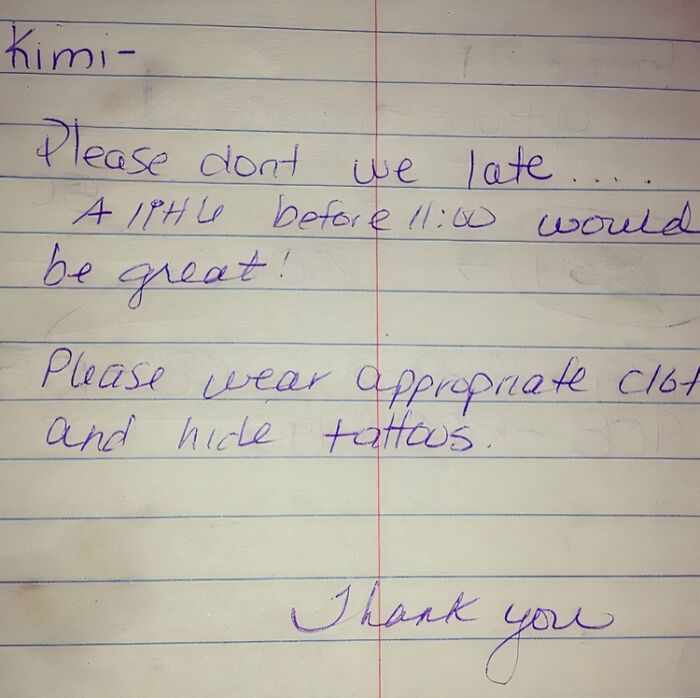 Kimi-
Please dont we late....
A little before 11:00 would
be great!
Please wear appropriate clot
and hide tattoos.
Thank you